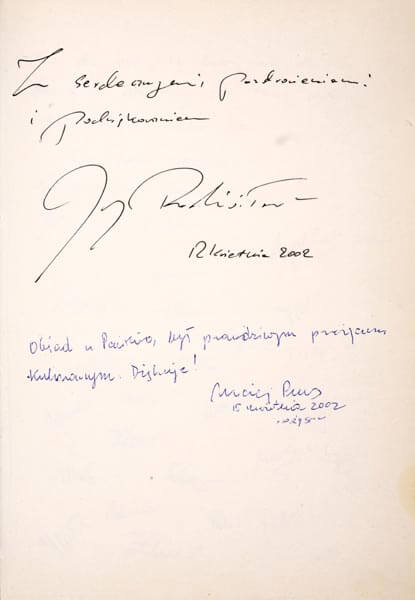 Z serdecznymi pozdrowieniami
i podziękowaniem
Jerzy
12 kwietnia 2002
Obiad u Państwa, był prawdziwym przeżyciem
kulinarnym. Dziękuję!
Maciej Prus
15 kwietnia 2002